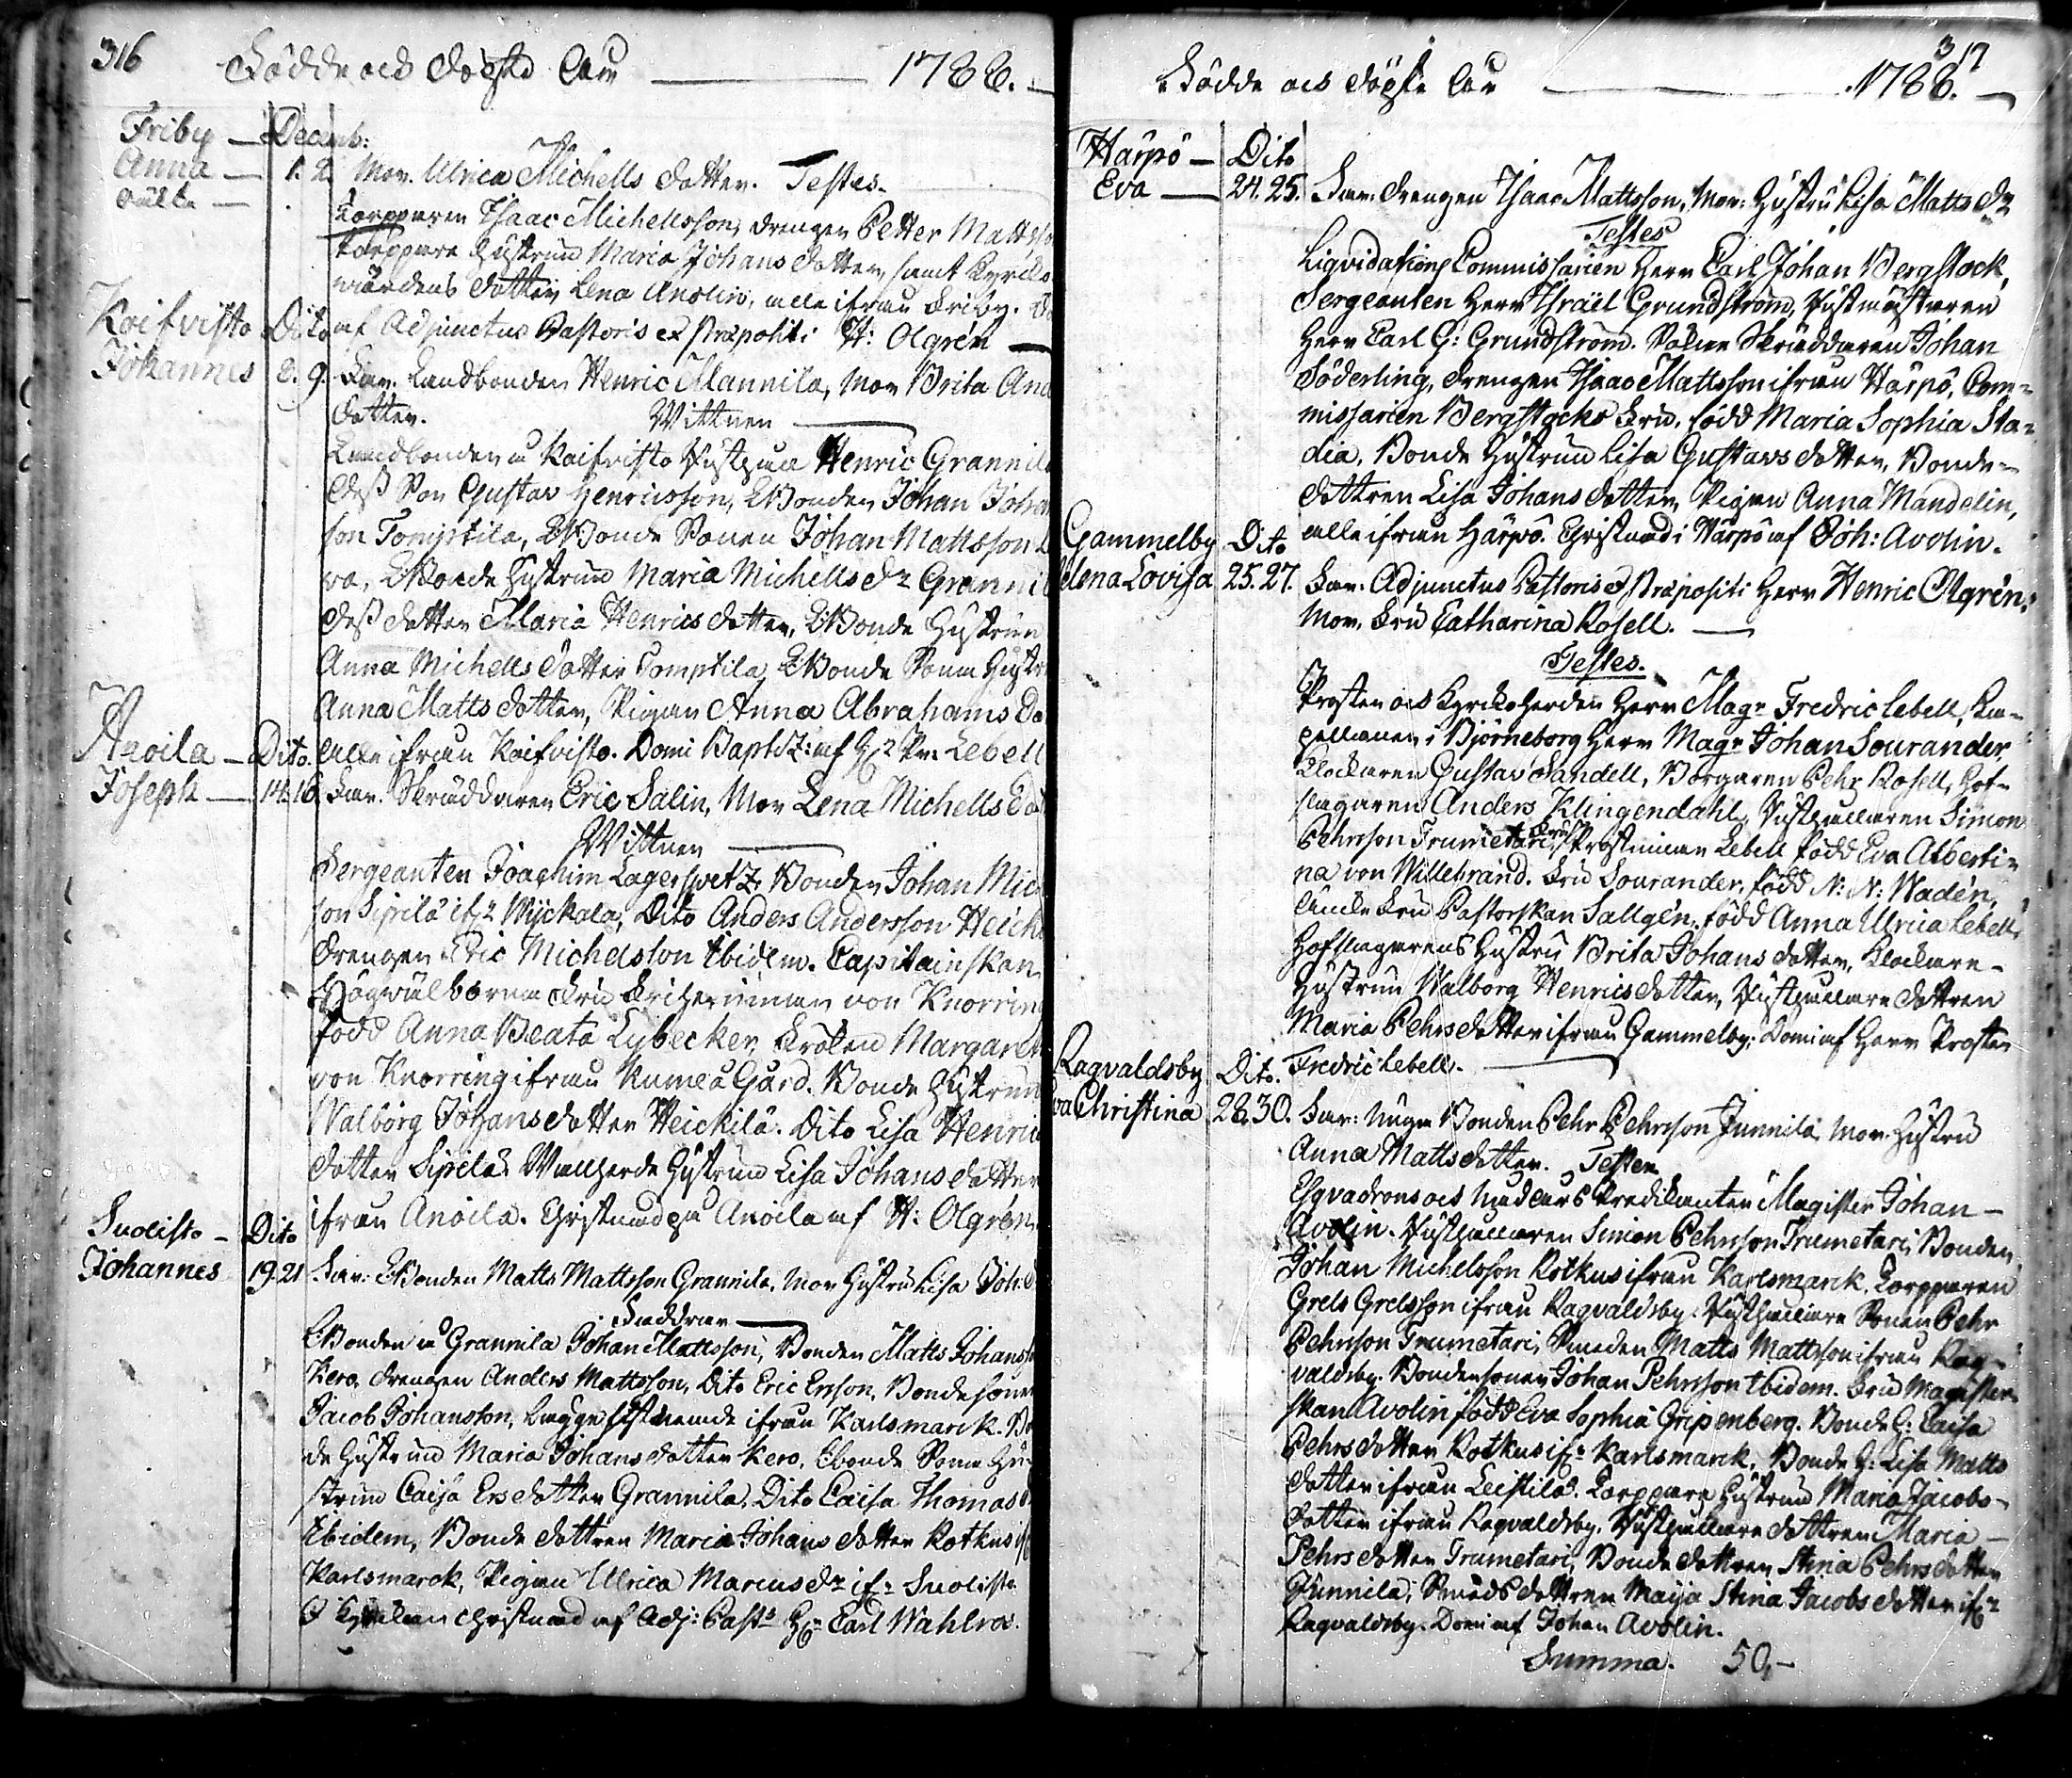 316 Födde och döpte Åhr 1788.
Friby Decemb:
Anna 1. 2. Mor. Ulrica Michells dotter. Testes.
oäkta
Torpparen Isaac Michellsson, drengen Petter Mattsso
torppare hustrun Maria Johans dotter, samt Kyrcko
wärdens dotter Lena Anolin, alla ifrån Friby.
Koifvisto Dito af Adjunctus Pastoris et præpositi H: Olgrén
Johannes 8. 9. Far. Landbonden Henric Mannila, Mor Brita And
dotter. Wittnen
Landbonden i Koifvisto Henric Grannila
dess Son Gustav Henricsson, Bonden Johan Johan
son Tomptila, Bonde Sonen Johan Mattsson
Bonde hustrun Maria Michells dr Grannil
dess dotter Maria Henrics dotter, Bonde hustrun
Anna Michells dotter Tomptila, Bonde Sonens Hustr
Anna Matts dotter, Pigan Anna Abrahams do
Anoila Dito. alla ifrån Koifvisto. Domi Baptiz: af Hr Pr. Lebell
Joseph 14. 16. Far. Skräddaren Eric Salin, Mor Lena Michells dot
Wittnen
Sergeanten Joachim Lagerswetz, Bonden Johan Mich
son Sipilä Wyckala, Dito Anders Andersson Heicki
drengen Eric Michelsson Ibidem. Capitainskan
Högwälborna Fru Friherinnan von Knorring
född Anna Beata Lybecker, Fröken Margaret
von Knorring ifrån Kumeå Gård. Bonde hustrun
Walborg Johans dotter Heickilä. Dito Lisa Henric
dotter Sipilä. hustrun Lisa Johans dotter
ifrån Anoila. Christnad på Anoila af H: Olgrén
Suolisto Dito
Johannes 19. 21 Far: Bonden Matts Mattsson Grannila, Mor Hustru Lisa Joh: d
Faddrar
Bonden Grannila Johan Mattsson, Bonden Matts Johanss
Kero, drengen Anders Mattsson, Dito Eric Ersson, Bonde sonen
Jacob Johansson, ifrån Karlsmarck. Bo
de hustrun Maria Johans dotter Kero, Bonde Sonens Hu
strun Caisa Ersdotter Grannila, Dito Caisa Thomas
Ibidem, Bonde dottren Maria Johans dotter Rotkus if
Karlsmarck, Pigan Ulrica Marcus dr ifr Suolisto
I Kyrkan Christnad af Adj: Past: Hr Carl Wahlroos.
317
Födde och döpte Åhr 1788.
Harpö Dito
Eva 24. 25. Far. drengen Isaac Mattsson, Mor: Hustru Lisa Matts dr
Testes
Liqvidations Commissarien Herr Carl Johan Bergstock,
Sergeanten Herr Israël Grundström,
Herr Carl G: Grundström. Skräddaren Johan
Söderling, drengen Isaac Mattsson ifrån Harpö, Com-
missarien Bergstocks Fru, född Maria Sophia Sta-
dia, Bonde Hustrun Lisa Gustavs dotter, Bonde-
dottren Lisa Johans dotter, Pigan Anna Mandelin,
alla ifrån Harpö. Christnad i Harpö af Joh: Avolin.
Gammelby Dito
Lena Lovisa 25. 27. Far. Adjunctus Pastoris et præpositi Herr Henric Olgrén;
Mor, Fru Catharina Rosell.
Testes.
Prosten och Kyrckoherden Herr Magr Fredric Lebell, Ka-
pellanen i Björneborg Herr Magr Johan Sourander,
Klockaren Gustav Sandell, Borgaren Pehr Rosell, Hof-
slagaren Anders Klingendahl, Simon
Pehrsson Trumetari, Fru Prostinnan Lebell född Eva Alberti-
na von Willebrand. Fru Sourander, född N: N: Wadén,
Fru Pastorskan Sallgén, född Anna Ulrica Lebell,
Hofslagarens Hustru Brita Johans dotter, Klockare-
Hustrun Walborg Henrics dotter, dottren
Maria Pehrs dotter ifrån Gammelby; Domi af Herr Prosten
Ragvaldsby Dito. Fredric Lebell.
Eva Christina 28. 30. Far: Bonden Pehr Pehrsson Junnila, Mor. Hustru
Anna Matts dotter. Testes
Esqvadrons och Predikanten Magister Johan
Avolin. Simon Pehrsson Trumetari, Bonden
Johan Michelsson Rotkus ifrån Karlsmarck. Torpparen
Grels Grelsson ifrån Ragvaldsby. Sonen Pehr
Pehrsson Trumetari, Smeden Matts Mattsson ifrån Rag-
valdsby. Bondesonen Johan Pehrsson Ibidem. Fru Magister-
skan Avolin född Eva Sophia Gripenberg. Bonde H: Caisa
Pehrs dotter Rotkus ifr Karlsmarck, Bonde H: Lisa Matts
dotter ifrån Leistilä. Torppare Hustrun Maria Jacobs-
dotter ifrån Ragvaldsby, dottren Maria
Pehrs dotter Trumetari, Bonde dottren Stina Pehrs dotter
Junnila, Smeds dottren Maija Stina Jacobs dotter ifr
Ragvaldsby. Domi af Johan Avolin.
Summa. 50,-